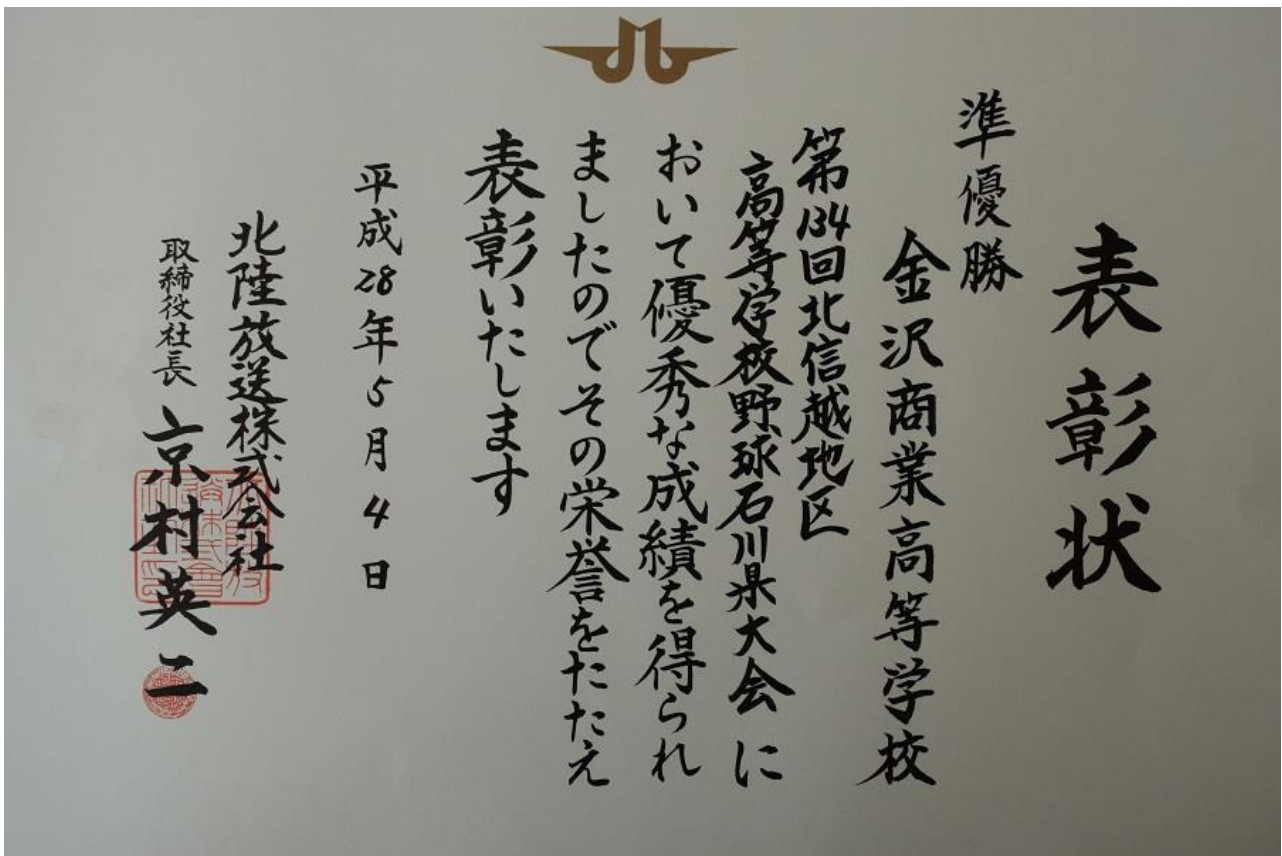 表彰状
準優勝
金沢商業高等学校
第134回北信越地区
高等学校野球石川県大会に
おいて優秀な成績を得られ
ましたのでその栄誉をたたえ
表彰いたします
平成28年5月4日
北陸放送株式会社
取締役社長 京村英二